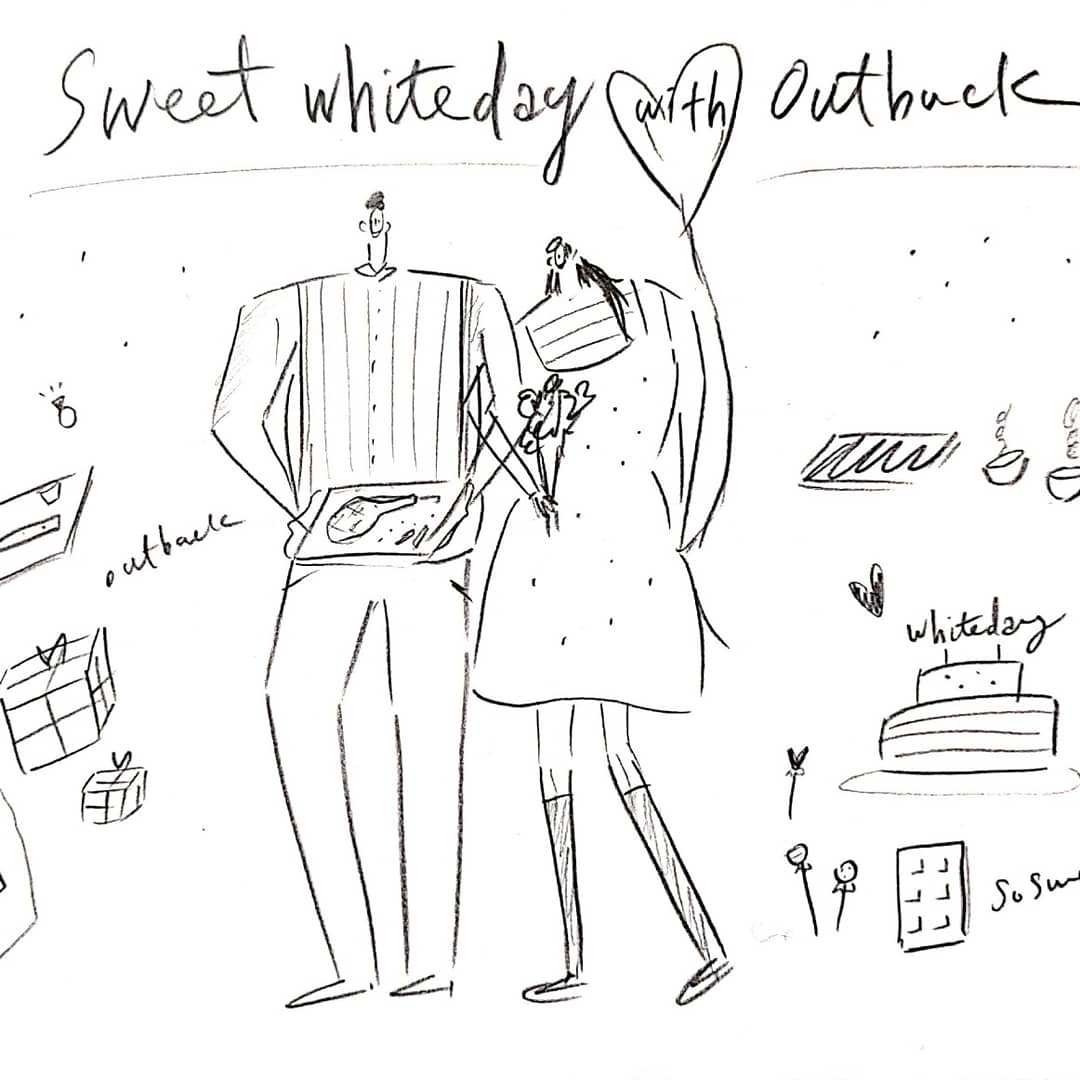 Sweet whiteday with Outback
outback
whiteday
So